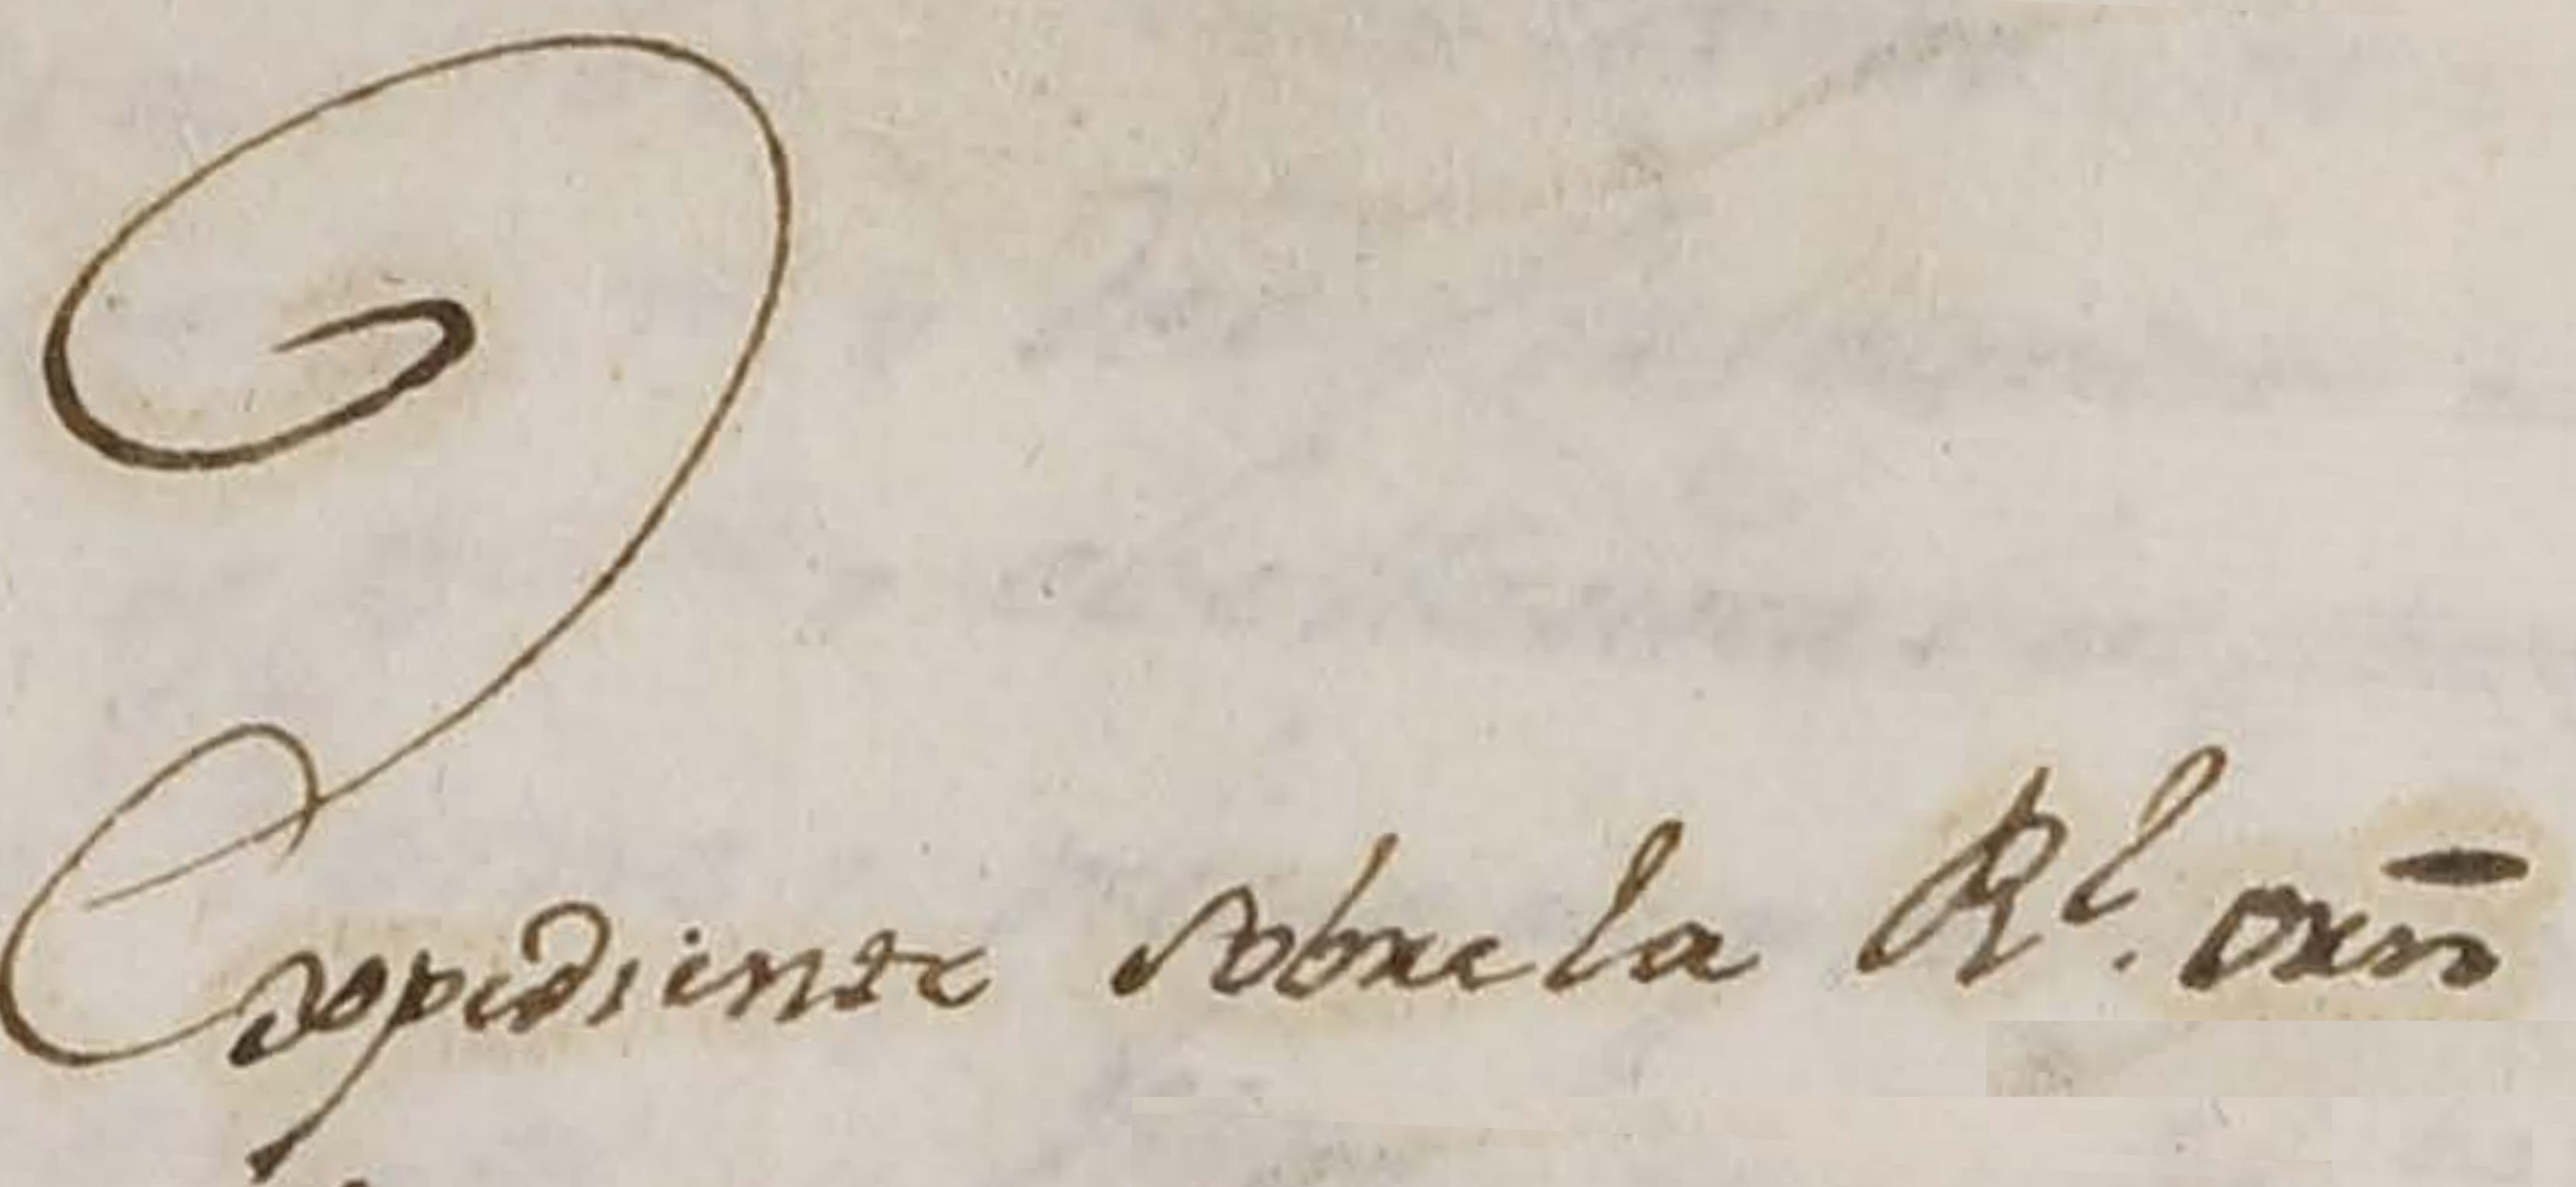 Expediente sobre la Rl. orn̄